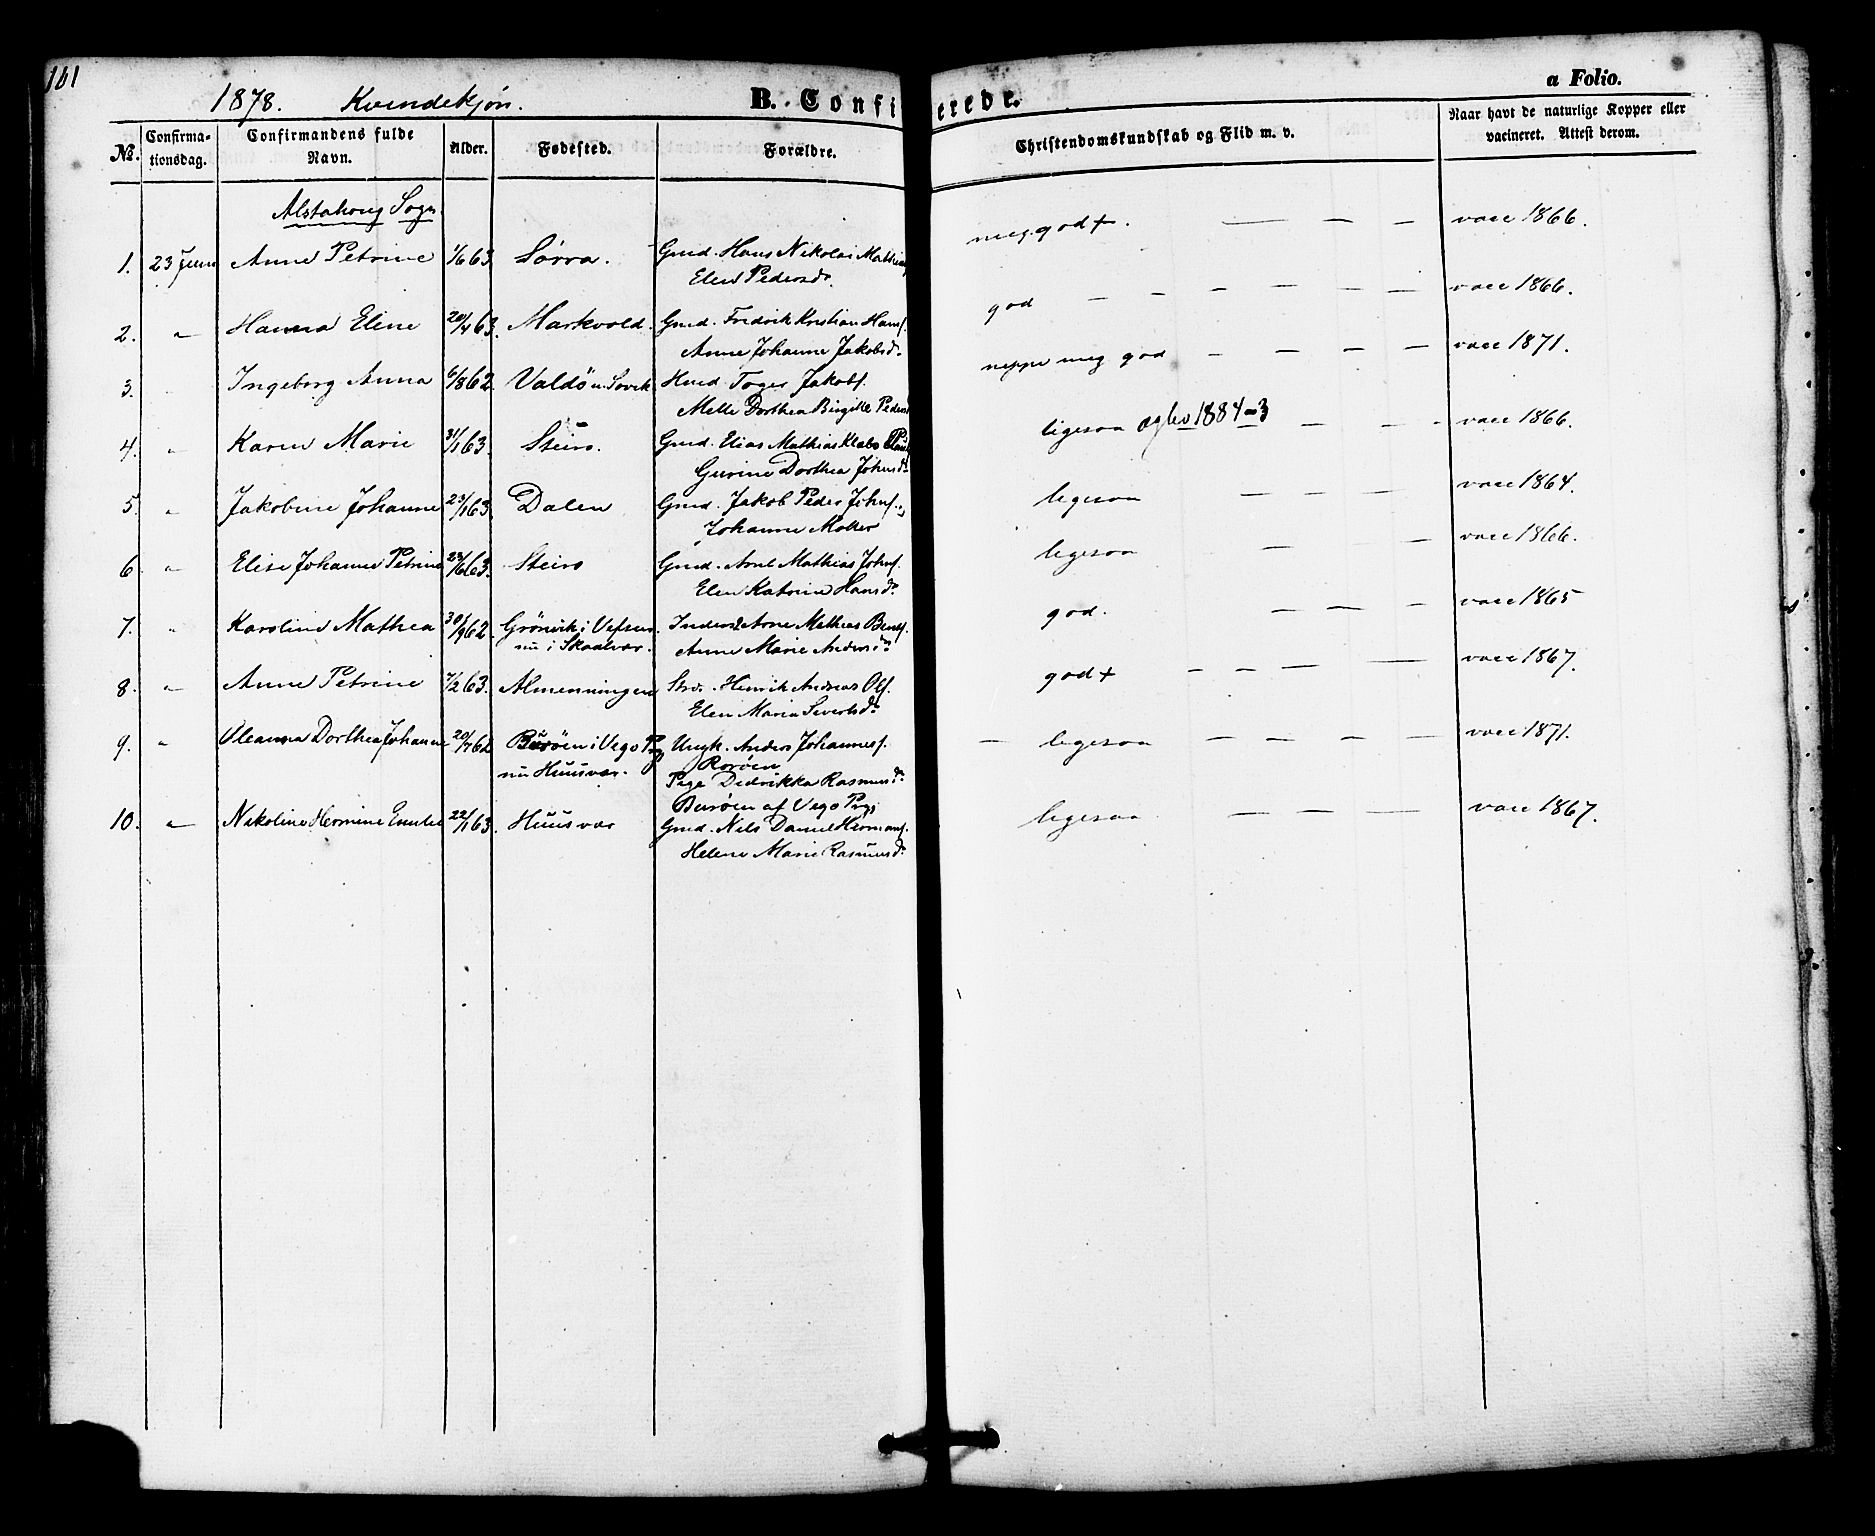 101
1878. Kvindekjøn. B. Confi erede. a Folio.
No. Confirma-tionsdag. Confirmandens fulde Navn. Alder. Fødested. Forældre. Christendomskundskab og Flid m. v. Naar havt de naturlige Kopper eller vacineret. Attest derom.
Alstahoug Sogn.
1. 23 Juni Anne Petrine 1/6 63 Sørra. Gmd. Hans Nikolai Mathias meg. god +. — — — vacc 1866.
Elen Pedersd.
2. " Hanna Eline 20/4 63. Markvold. Gmd. Fredrik Kristian Hansf. god — — — — — — vacc 1866.
Anne Johanne Jakobsd.
3. " Ingeborg Anna 6/8 62 Valdö n. Sovik Hmd. Toger Jakobf. neppe meg god — — — — vacc 1871.
Mette Dorthea Birgitte Peders
4. " Karen Marie 31/1 63. Steiro. Gmd. Elias Mathias Klabo ligesaa 1884 - 3 — — - vacc 1866.
Gurine Dorthea Johnsd.
5. " Jakobine Johanne 23/1 63. Dalen Gmd. Jakob Peder Johnf. ligesaa — — — vacc 1864.
Johanne Moller
6. " Elise Johanne Petrine 23/6 63. Steiro Gmd. Arnt Mathias Johnf. ligesaa — — vacc 1866.
Elen Katrine Hansd.
7. " Karoline Mathea 30/9 62. Grönvik i Vefsen Inders. Arne Mathias Bentf. god. — — — vacc 1865
nu i Skaalvær. Anne Marie Andersd.
8. " Anne Petrine 7/2 63. Almenningen Strd. Henrik Andreas Olf. god + — — — — vacc 1867.
Elen Maria Sivertsd.
9. " Oleanna Dorthea Johanne 20/7 62 Buröen i Vego Prg Ungk. Anders Johannesf. — ligesaa — — — — vacc 1871.
nu Huusvær. Rorøen
Pige Didrikka Rasmusd.
Burøen af Vego Prgj
10. " Nikoline Hermine 22/1 63. Huusvær Gmd. Nils Daniel Hermanf. ligesaa — — — — vacc 1867.
Helene Marie Rasmusd.